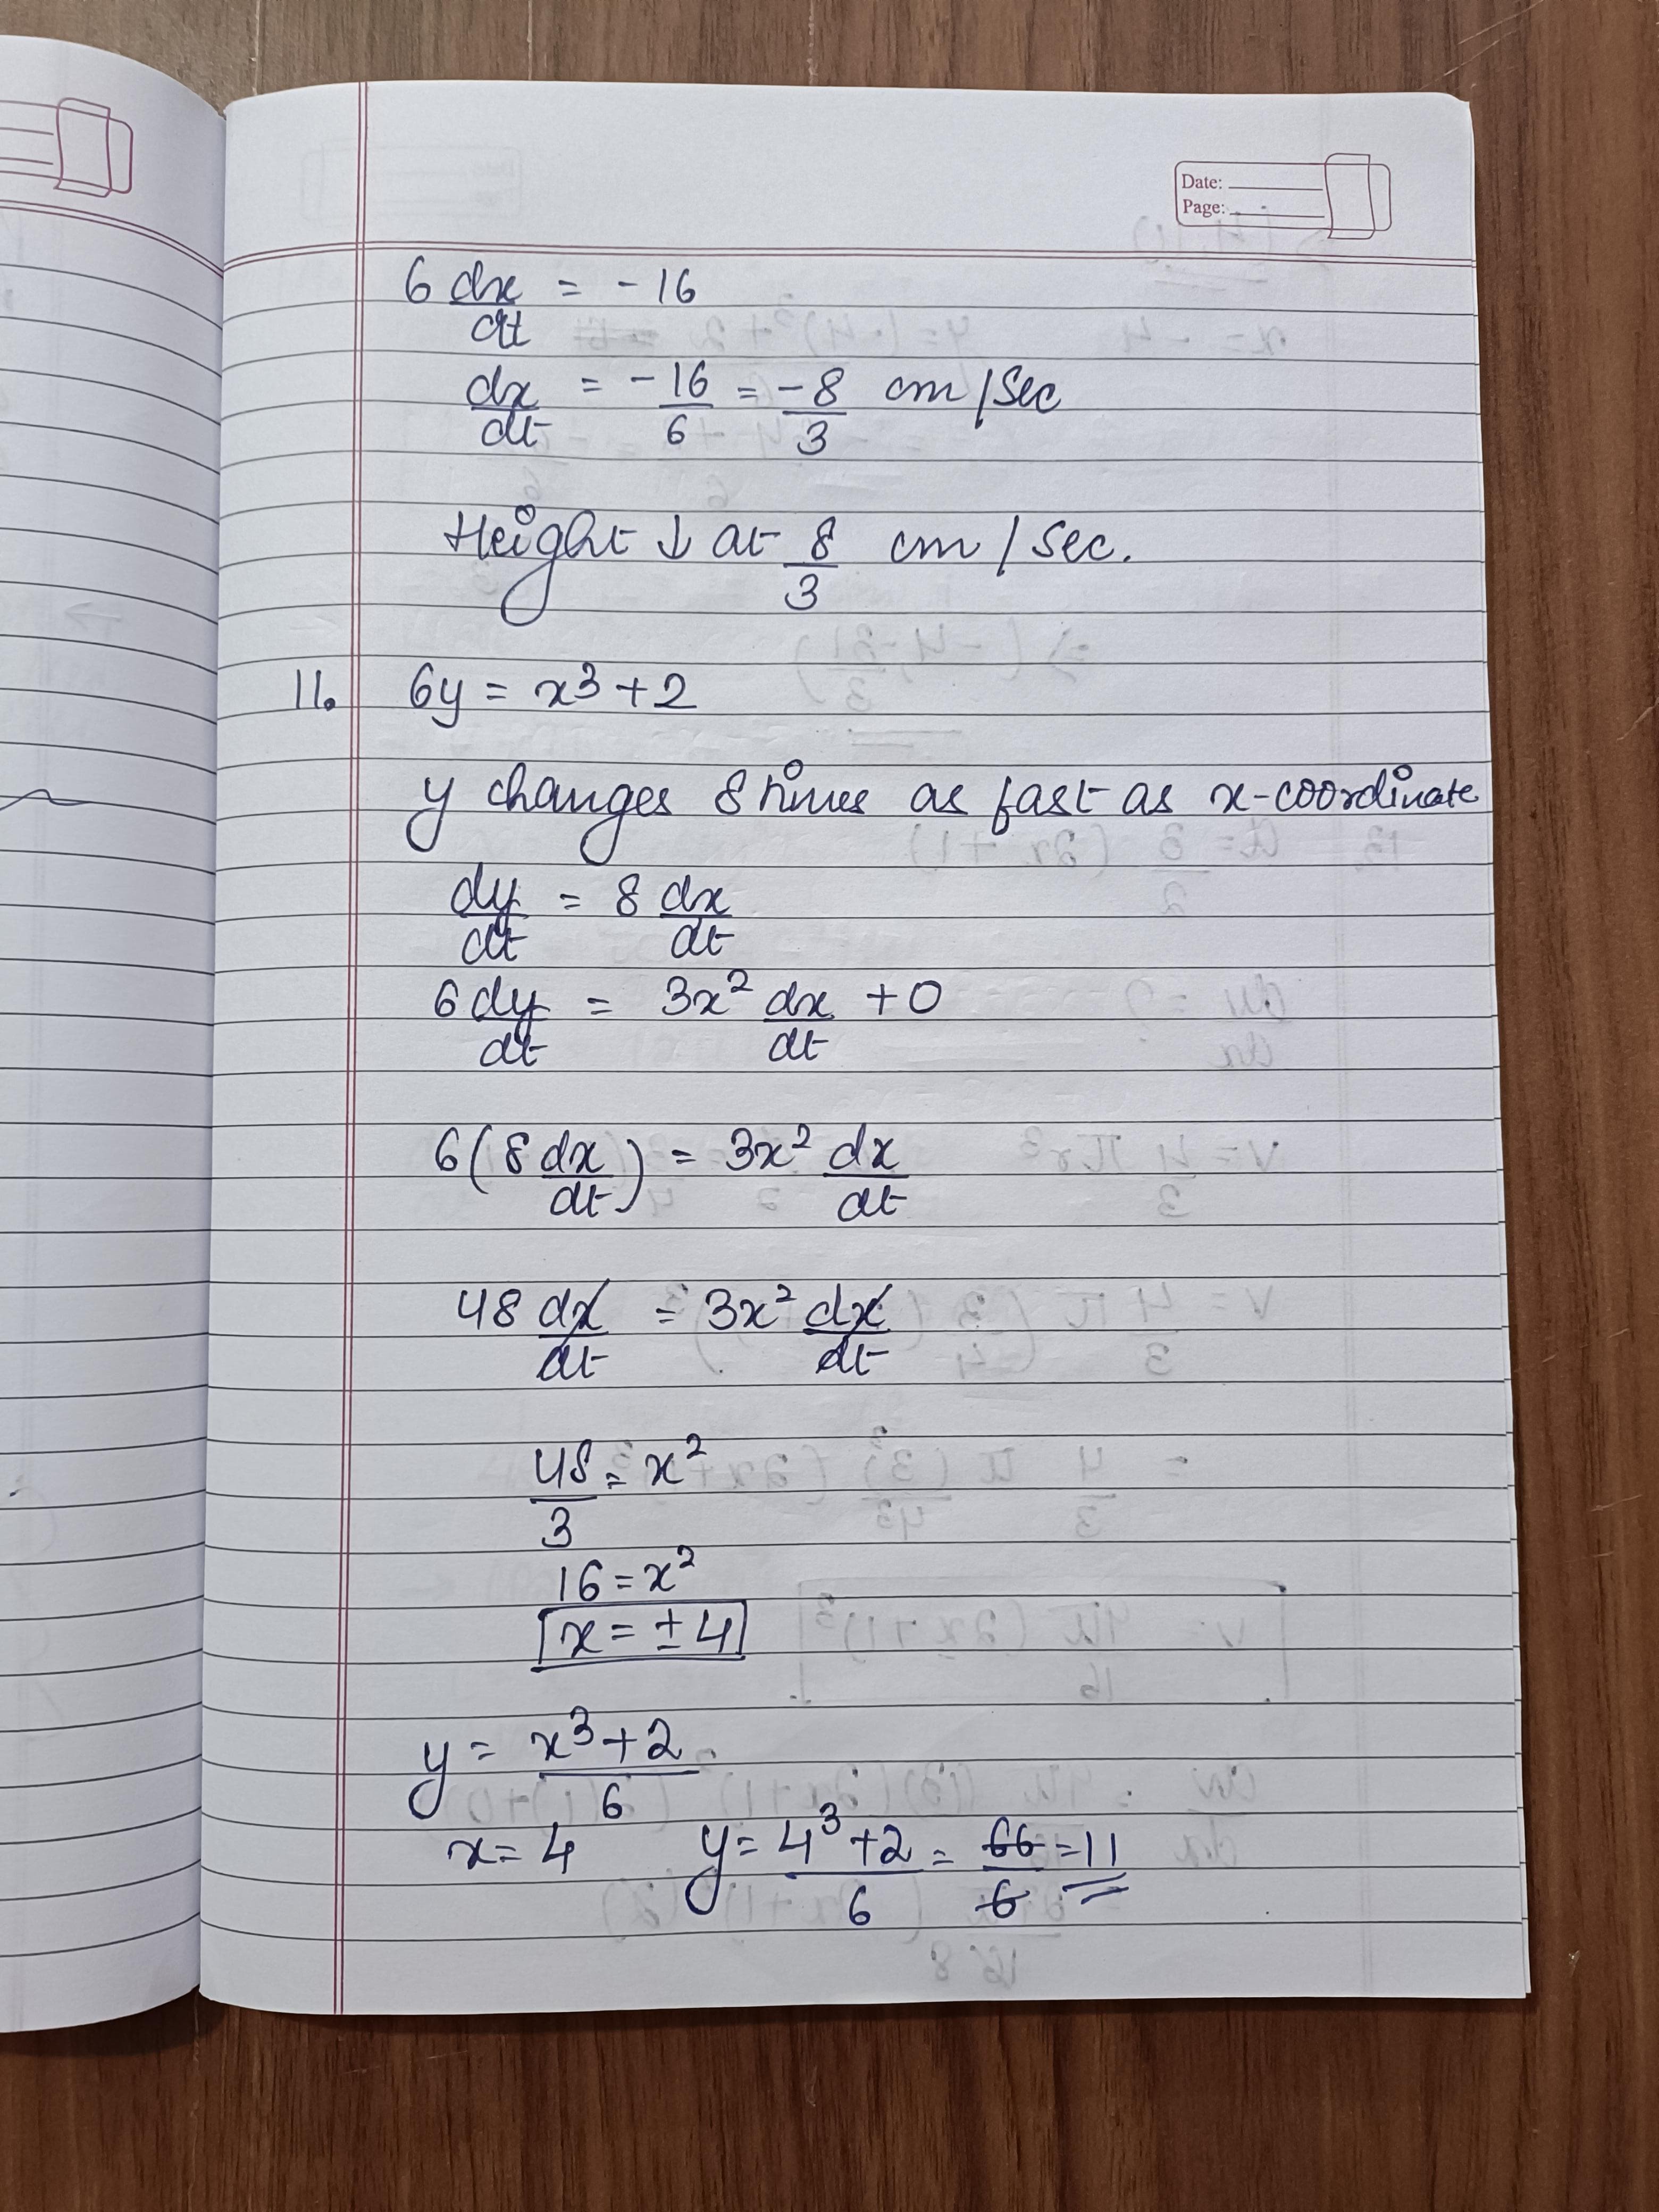 Date:
Page:
6 dx/dt = - 16
dx/dt = - 16/6 = - 8/3 cm/Sec
Height ↓ at 8/3 cm/Sec.
11. 6y = x³ + 2
y changes 8 times as fast as x-coordinate
dy/dt = 8 dx/dt
6 dy/dt = 3x² dx/dt + 0
6(8 dx/dt) = 3x² dx/dt
48 dx/dt = 3x² dx/dt
48/3 = x²
16 = x²
x = ± 4
y = x³+2/6
x = 4 y = 4³+2/6 = 66/6 = 11